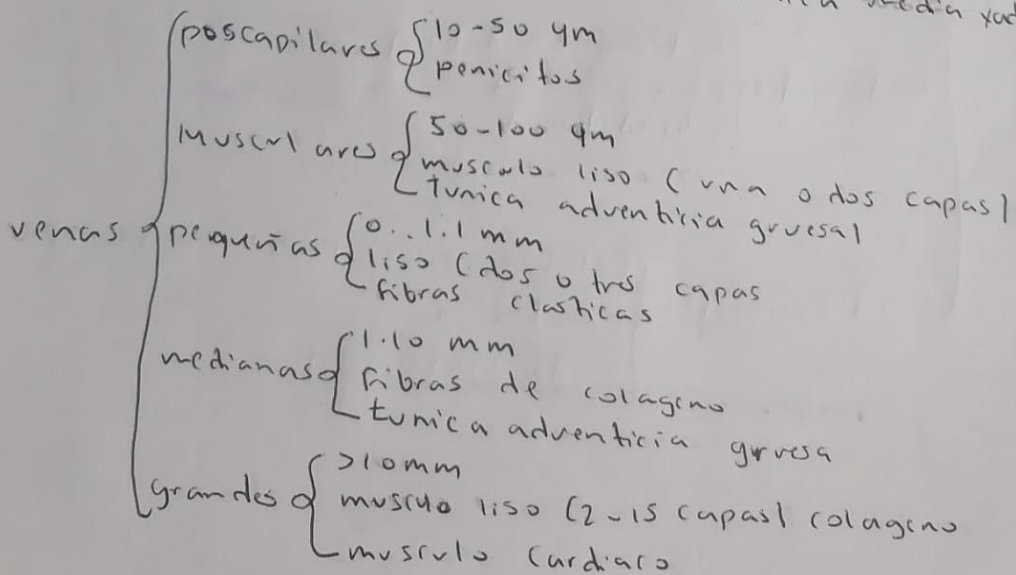 media
poscapilares 10-50 qm
penicitos
Musculares 50-100 qm
musculo liso (una o dos capas)
tunica adventicia gruesa)
venas pequeñas 0..1.1 mm
liso (dos o tres capas
fibras elasticas
medianas 1.10 mm
fibras de colageno
tunica adventicia gruesa
grandes >10mm
muscuo liso (2-15 capas) colageno
musculo cardiaco